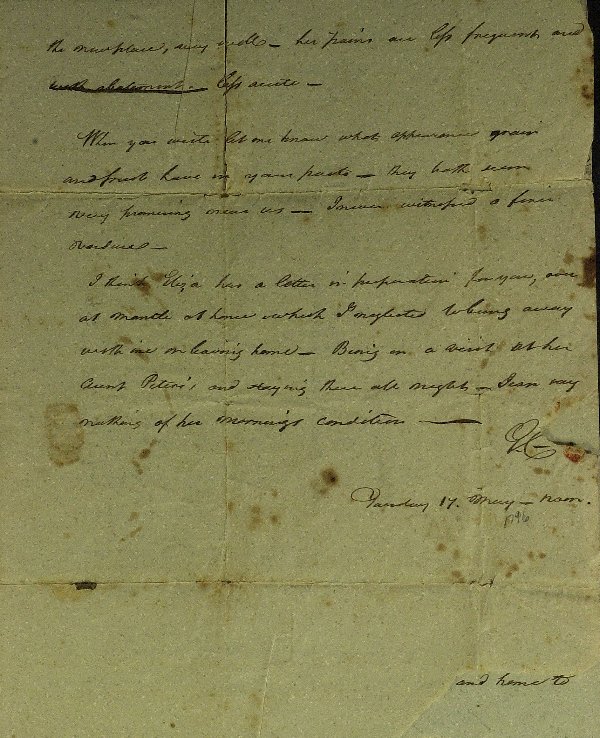 the new place, very well — her pains are less frequent and
with abatement. less acute —
When you write let me know what appearance grain
and fruit have in your parts — they both seem
very promising near us — I never witnessed a finer
verdure —
I think Eliza has a letter in preparation for you, one
at Mantle at home which I neglected to bring away
with me on leaving home — Being on a visit at her
Aunt Peters', and staying there all night — I can say
nothing of her mornings condition —
Tuesday 17. May — noon.
1796
and hence to